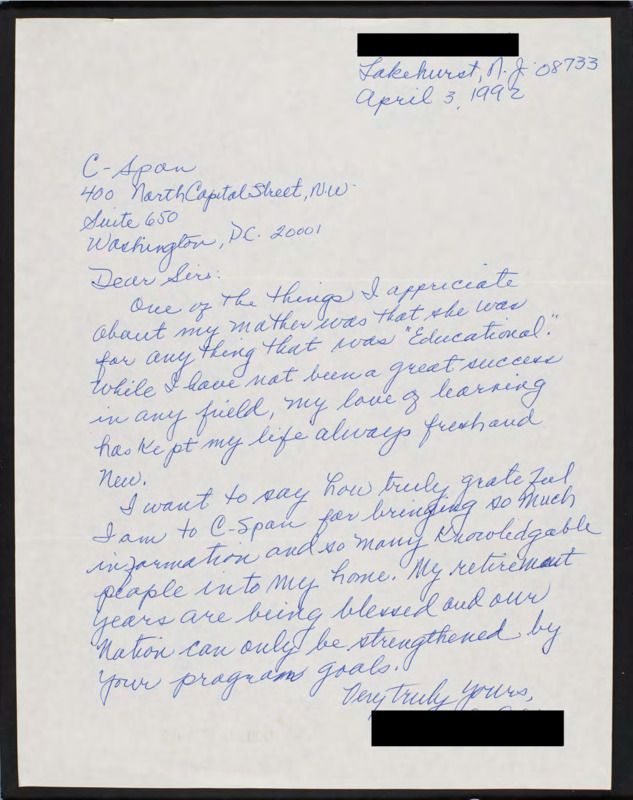 Lakehurst, N.J. 08733
April 3, 1992
C-Span
400 North Capitol Street, N.W.
Suite 650
Washington, D.C. 20001
Dear Sirs:
One of the things I appriciate
about my mother was that she was
for anything that was "Educational."
While I have not been a great success
in any field, my love of learning
has kept my life always fresh and
New.
I want to say how truly grateful
I am to C-Span for bringing so much
information and so many knowledgable
people into my home. My retirement
years are being blessed and our
Nation can only be strengthened by
your program goals.
Very truly yours,